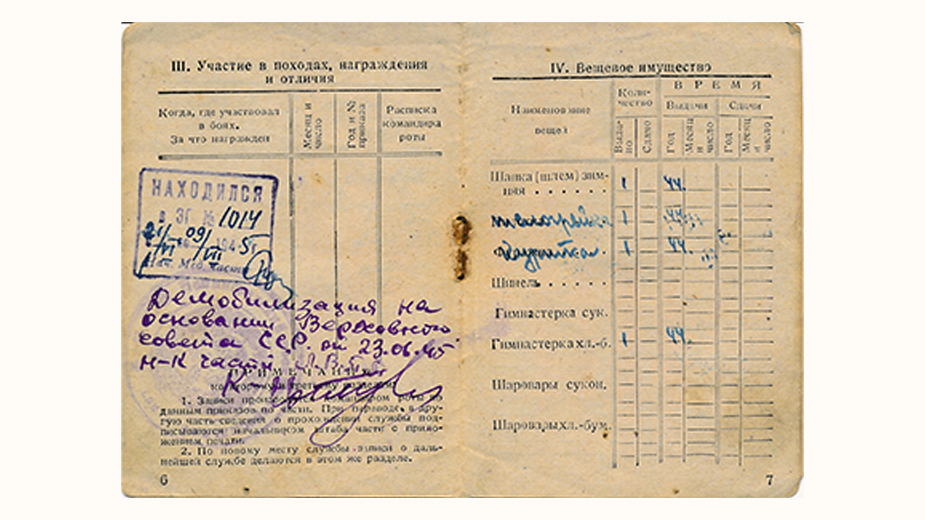 III. Участие в походах, награждения
и отличия
Когда, где участвовал
в боях.
За что награжден
Месяц и
число
Год и №
приказа
Расписка
командира
роты
НАХОДИЛСЯ
в ЭГ № 1014
21/VI 09/VII 1945
Нач. Мед. части
Демобилизация на
основании Верховного
совета СССР. от 23.06.45
Н-К части
ПРИМЕЧАНИЕ
1. Записи производятся командиром роты по
данным приказов по части. При переводе в дру-
гую часть сведения о прохождении службы под-
писываются начальником штаба части с прило-
жением печати.
2. По новому месту службы записи о даль-
нейшей службе делаются в этом же разделе.
6
IV. Вещевое имущество
Наименование
вещей
Коли-
чество
ВРЕМЯ
Выдачи
Сдачи
Выда-
но
Сдано
Год
Месяц
и
число
Год
Месяц
и
число
Шапка (шлем) зим-
няя . . . . . . 1 44.
телогрейка 1 44
1 44.
Шинель . . . . .
Гимнастерка сук.
Гимнастерка хл.-б. 1 44.
Шаровары сукон.
Шаровары хл.-бум.
7